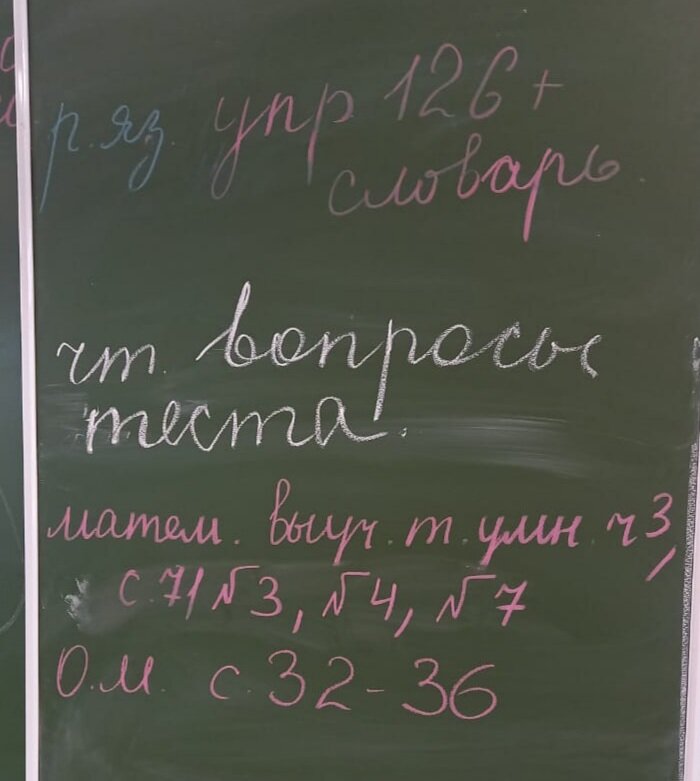 р. яз. упр 126 +
словарь.
чт. вопросы
теста.
матем. выуч. т. умн. ч 3,
с. 71 № 3, № 4, № 7
О.м. с. 32 - 36